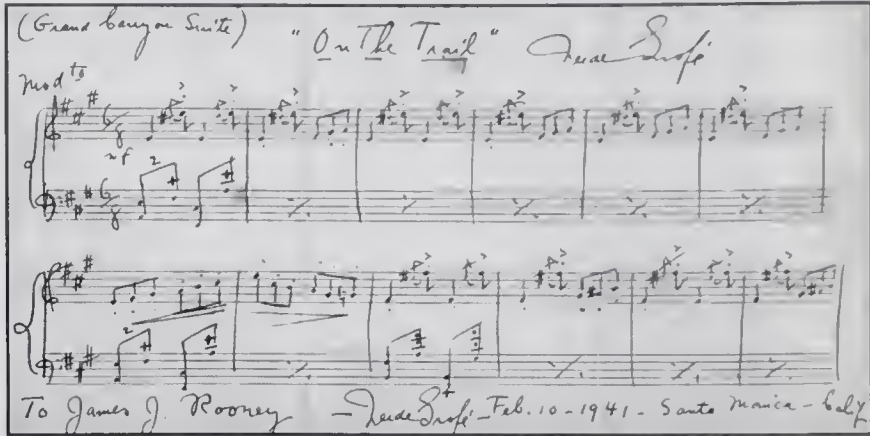 (Grand Canyon Suite) "On The Trail" Ferde Grofé
Mod to
6/8
mf
2
6/8
2
To James J. Rooney — Ferde Grofé - Feb. 10 - 1941 - Santa Monica - Calif